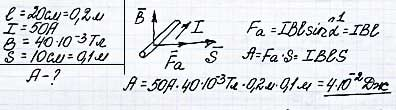 ℓ = 20см = 0,2м
I = 50А
B = 40·10⁻³Тл
S = 10см = 0,1м
A - ?
B⃗
I
F⃗а
S⃗
Fа = IBℓsinα¹ = IBℓ
A = Fа·S = IBℓS
A = 50А·40·10⁻³Тл·0,2м·0,1м = 4·10⁻²Дж